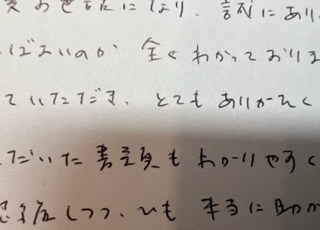 になり、誠にあり
ばよいのか 全くわかっておりま
ていただき、とてもありがたく
ただいた書類もわかりやすく
しつつ、いも 本当に助か